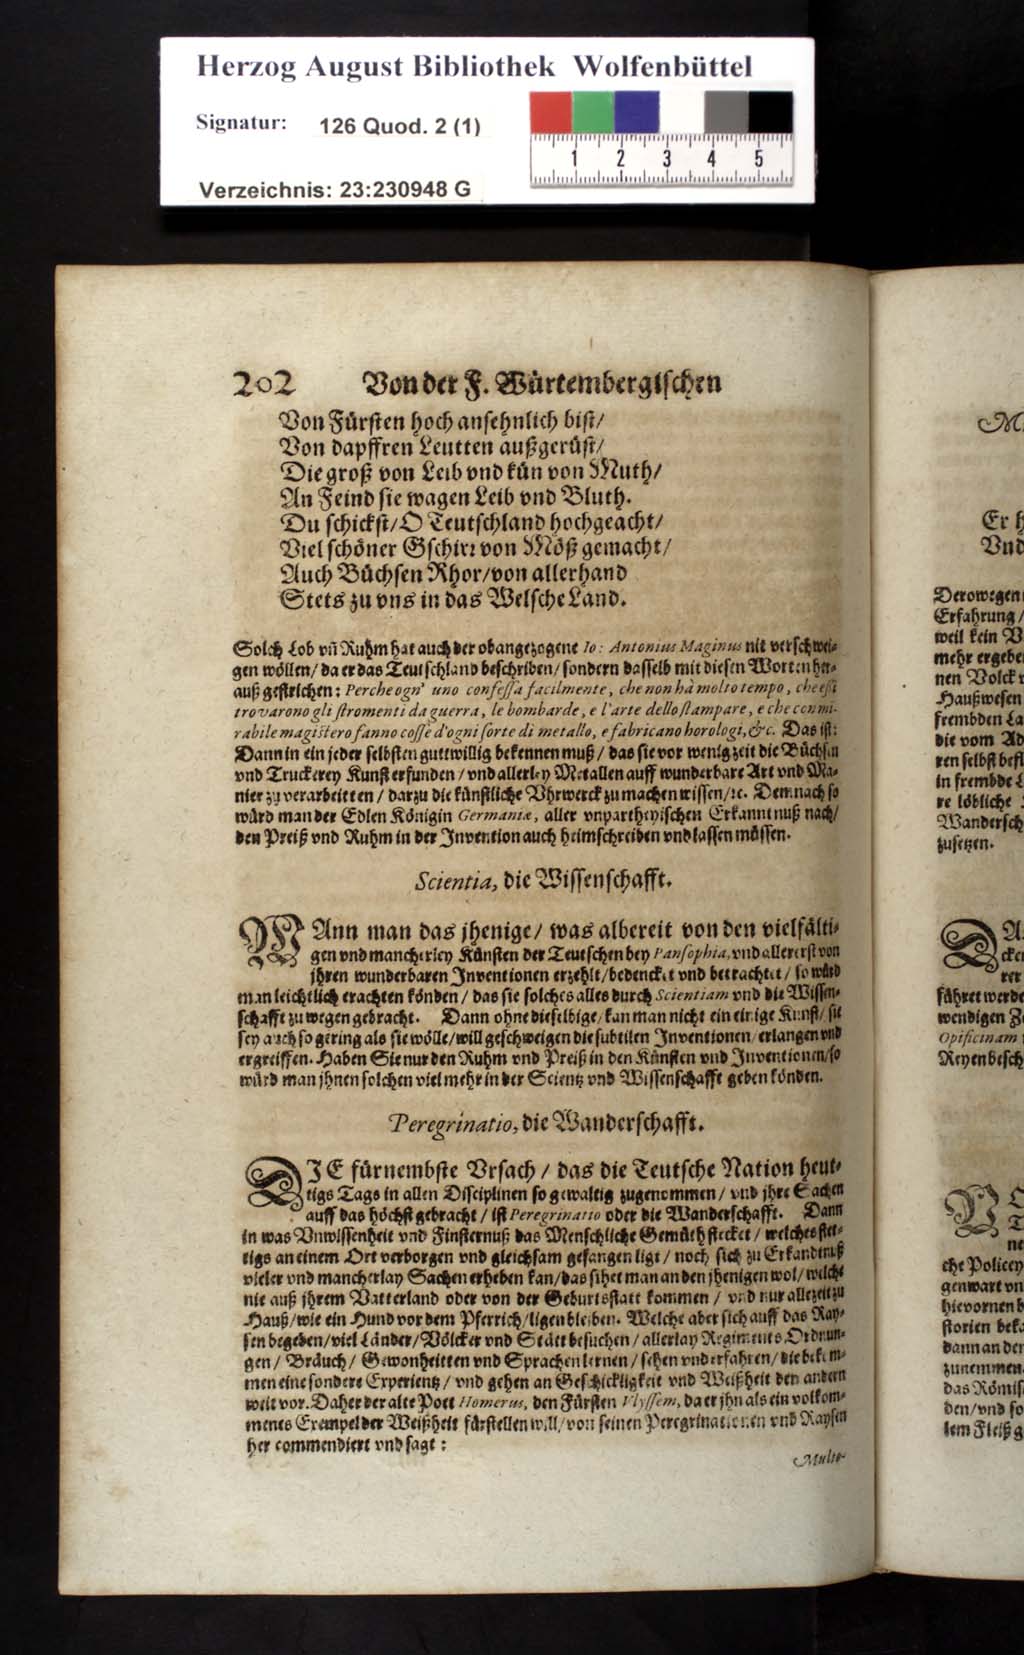 Herzog August Bibliothek Wolfenbüttel
Signatur: 126 Quod. 2 (1)
1 2 3 4 5
Verzeichnis: 23:230948 G
202 Von der F. Würtembergischen
Von Fürsten hoch ansehnlich bist/
Von dapffren Leutten außgerüst/
Die groß von Leib vnd kün von Muth/
An Feind sie wagen Leib vnd Bluth.
Du schickst/ O Teutschland hochgeacht/
Viel schöner Gschirr von Möß gemacht/
Auch Büchsen Rhor/ von allerhand
Stets zu vns in das Welsche Land.
Solch Lob vñ Ruhm hat auch der obangezogene Io: Antonius Maginus nit verschwei-
gen wöllen/ da er das Teutschland beschriben/ sondern dasselb mit diesen Worten her-
auß gestrichen: Perche ogn' uno confessa facilmente, che non hà molto tempo, che essi
trovarono gli stromenti da guerra, le bombarde, e l'arte dello stampare, e che con mi-
rabile magistero fanno cosse d'ogni sorte di metallo, e fabricano horologi, &c. Das ist:
Dann in ein jeder selbsten guttwillig bekennen muß/ das sie vor wenig zeit die Büchsen
vnd Truckerey Kunst erfunden/ vnd allerley Metallen auff wunderbare Art vnd Ma-
nier zu verarbeitten/ darzu die künstliche Vhrwerck zu machen wissen/ ꝛc. Demnach so
würd man der Edlen Königin Germaniæ, aller vnpartheyischen Erkanntnuß nach/
den Preiß vnd Ruhm in der Invention auch heimschreiben vnd lassen müssen.
Scientia, die Wissenschafft.
WAnn man das jhenige/ was albereit von den vielfälti-
gen vnd mancherley Künsten der Teutschen bey Pansophia, vnd allererst von
jhren wunderbaren Inventionen erzehlt/ bedencket vnd betrachtet/ so würd
man leichtlich erachten könden/ das sie solches alles durch Scientiam vnd die Wissen-
schafft zu wegen gebracht. Dann ohne dieselbige/ kan man nicht ein einige Kunst/ sie
sey auch so gering als sie wölle/ will geschweigen die subtilen Inventionen/ erlangen vnd
ergreiffen. Haben Sie nur den Ruhm vnd Preiß in den Künsten vnd Inventionen/ so
würd man jhnen solchen viel mehr in der Scientz vnd Wissenschafft geben könden.
Peregrinatio, die Wanderschafft.
DIE fürnembste Vrsach/ das die Teutsche Nation heut-
tigs Tags in allen Disciplinen so gewaltig zugenommen/ vnd jhre Sachen
auff das höchst gebracht/ ist Peregrinatio oder die Wanderschafft. Dann
in was Vnwissenheit vnd Finsternuß das Menschliche Gemüth stecket/ welches stet-
tigs an einem Ort verborgen vnd gleichsam gefangen ligt/ noch sich zu Erkandtnuß
vieler vnd mancherlay Sachen erheben kan/ das sihet man an den jhenigen wol/ welche
nie auß jhrem Vatterland oder von der Geburtsstatt kommen/ vnd nur allezeit zu
Hauß/ wie ein Hund vor dem Pferrich/ ligen bleiben. Welche aber sich auff das Ray-
sen begeben/ viel Länder/ Völcker vnd Stätt besuchen/ allerlay Regiments Ordnun-
gen/ Bräuch/ Gewonheitten vnd Sprachen lernen/ sehen vnd erfahren/ die bekom-
men eine sondere Experientz/ vnd gehen an Geschickligkeit vnd Weißheit den andern
weit vor. Daher der alte Poet Homerus, den Fürsten Vlyssem, da er jhn als ein volkom-
menes Exempel der Weißheit fürstellen will/ von seinen Peregrinationen vnd Raysen
her commendiert vnd sagt:
Multo-
Er h
Vnd
Derowegen
Erfahrung/
weil kein V
mehr ergebe
nen Volck
Haußwesen
frembden La
die vom Ad
ren selbst befl
in frembde L
re löbliche
Wandersch
zusetzen.
DA
cken
rer
führet werde
wendigen Ze
Opificinam
Reyen besch
che Policey
genwart vn
hievornen b
storien beka
dann an der
zunemmen
das Römis
den/ vnd so
lem Fleiß g